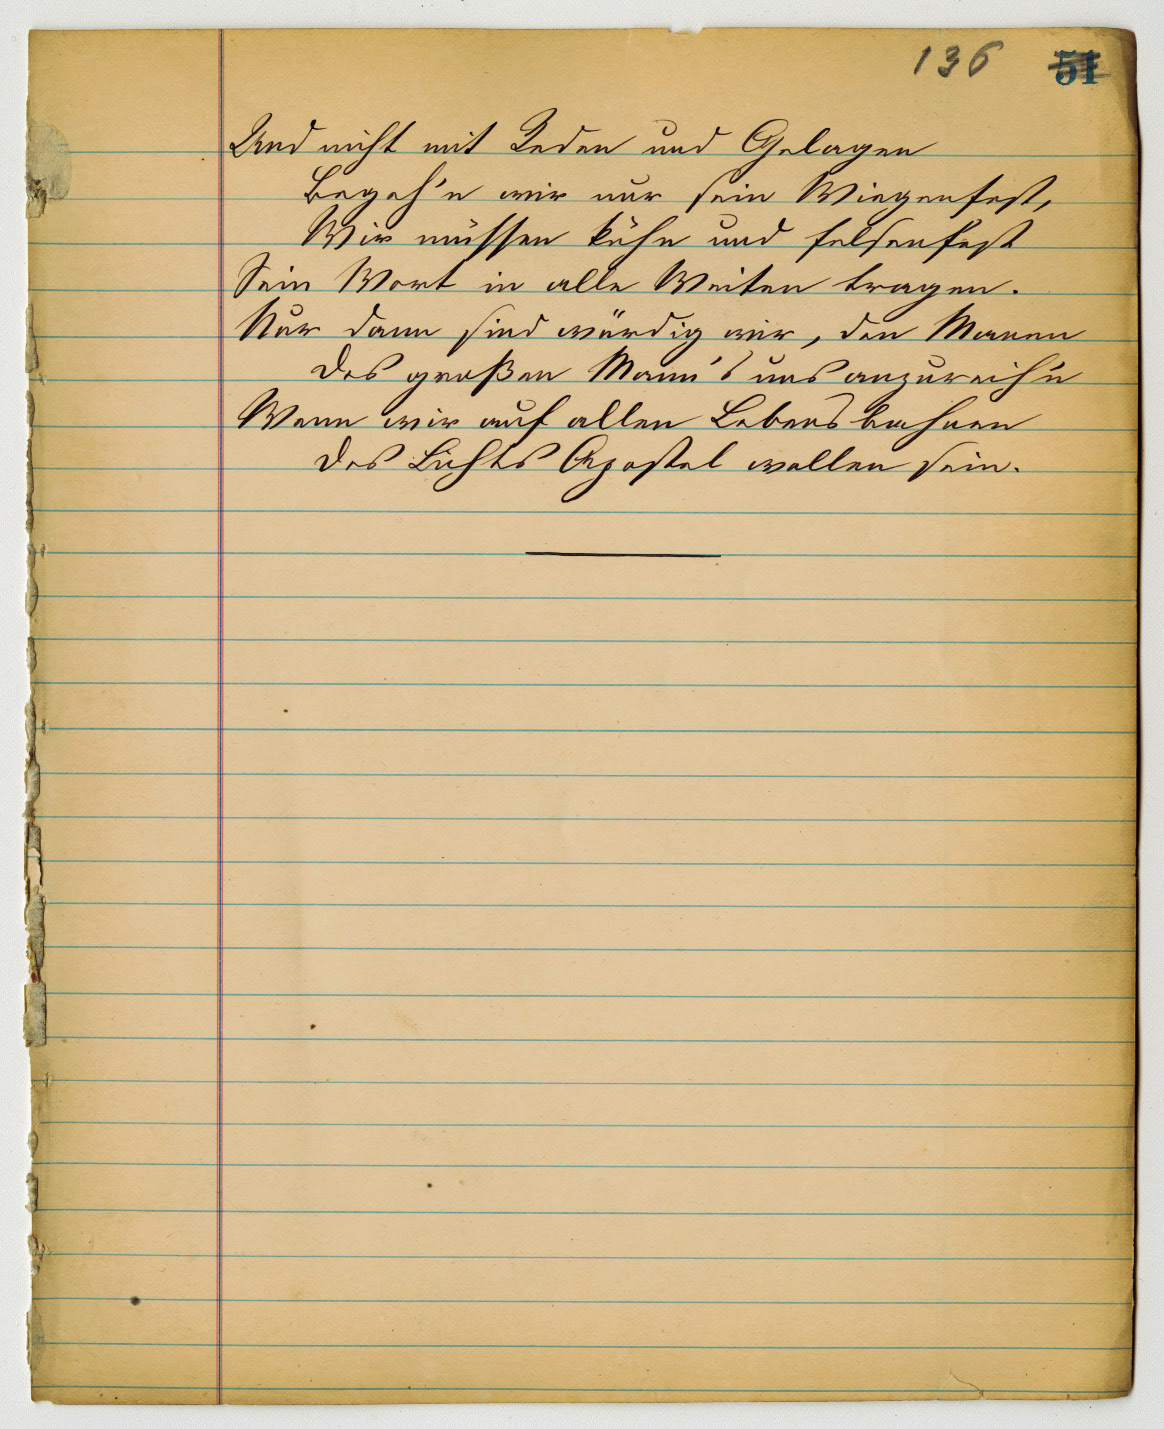 136 51
Und nicht mit Reden und Gelagen
Begeh'n wir nur sein Wiegenfest,
Wir müssen kühn und felsenfest
Sein Wort in alle Weiten tragen.
Nur dann sind würdig wir, den Manen
Des großen Mann's uns anzureih'n
Wenn wir auf allen Lebensbahnen
Des Lichts Apostel wollen sein.